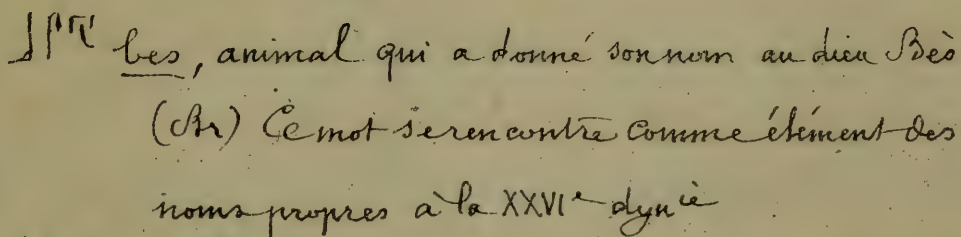 𓃀𓋴𓄛 bes, animal qui a donné son nom au dieu Bès
(Br) Ce mot se rencontre comme élément des
noms propres à la XXVIe dynie